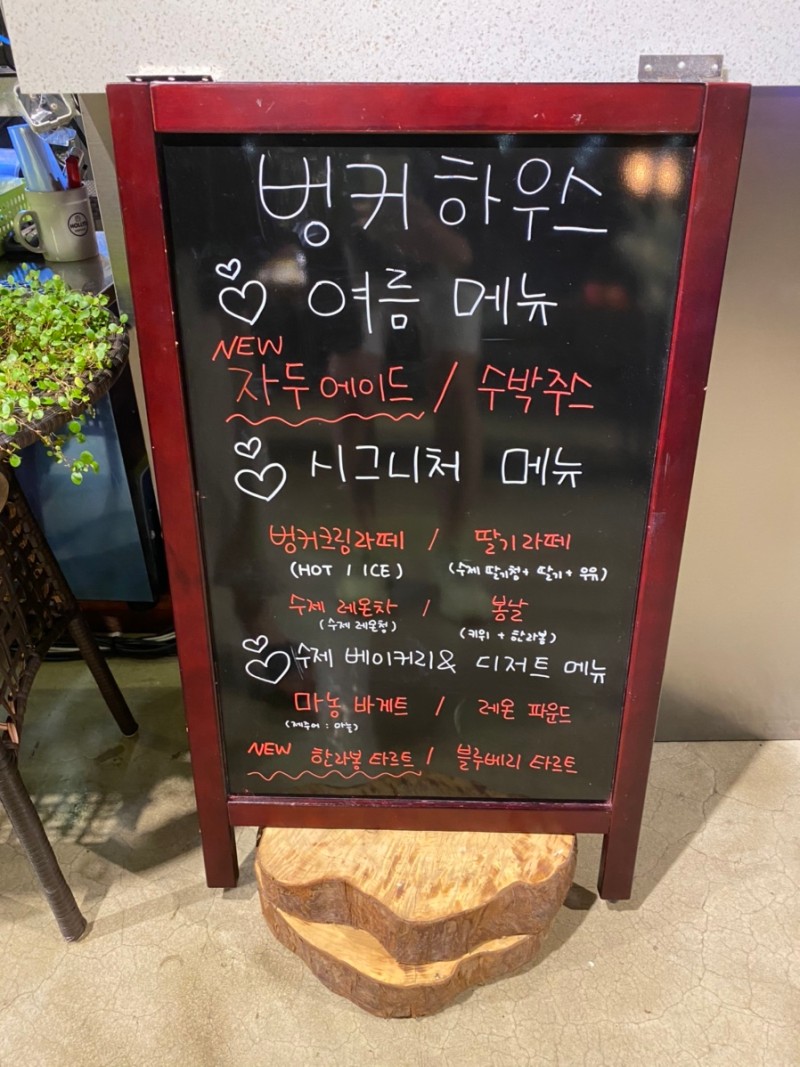 벙커하우스
여름 메뉴
NEW
자두에이드 / 수박주스
시그니처 메뉴
벙커크림라떼 / 딸기라떼
(HOT / ICE) (수제 딸기청 + 딸기 + 우유)
수제 레몬차 / 봄날
(수제 레몬청) (키위 + 한라봉)
수제 베이커리 & 디저트 메뉴
마농 바게트 / 레몬 파운드
(제주어 : 마늘)
NEW 한라봉 타르트 / 블루베리 타르트